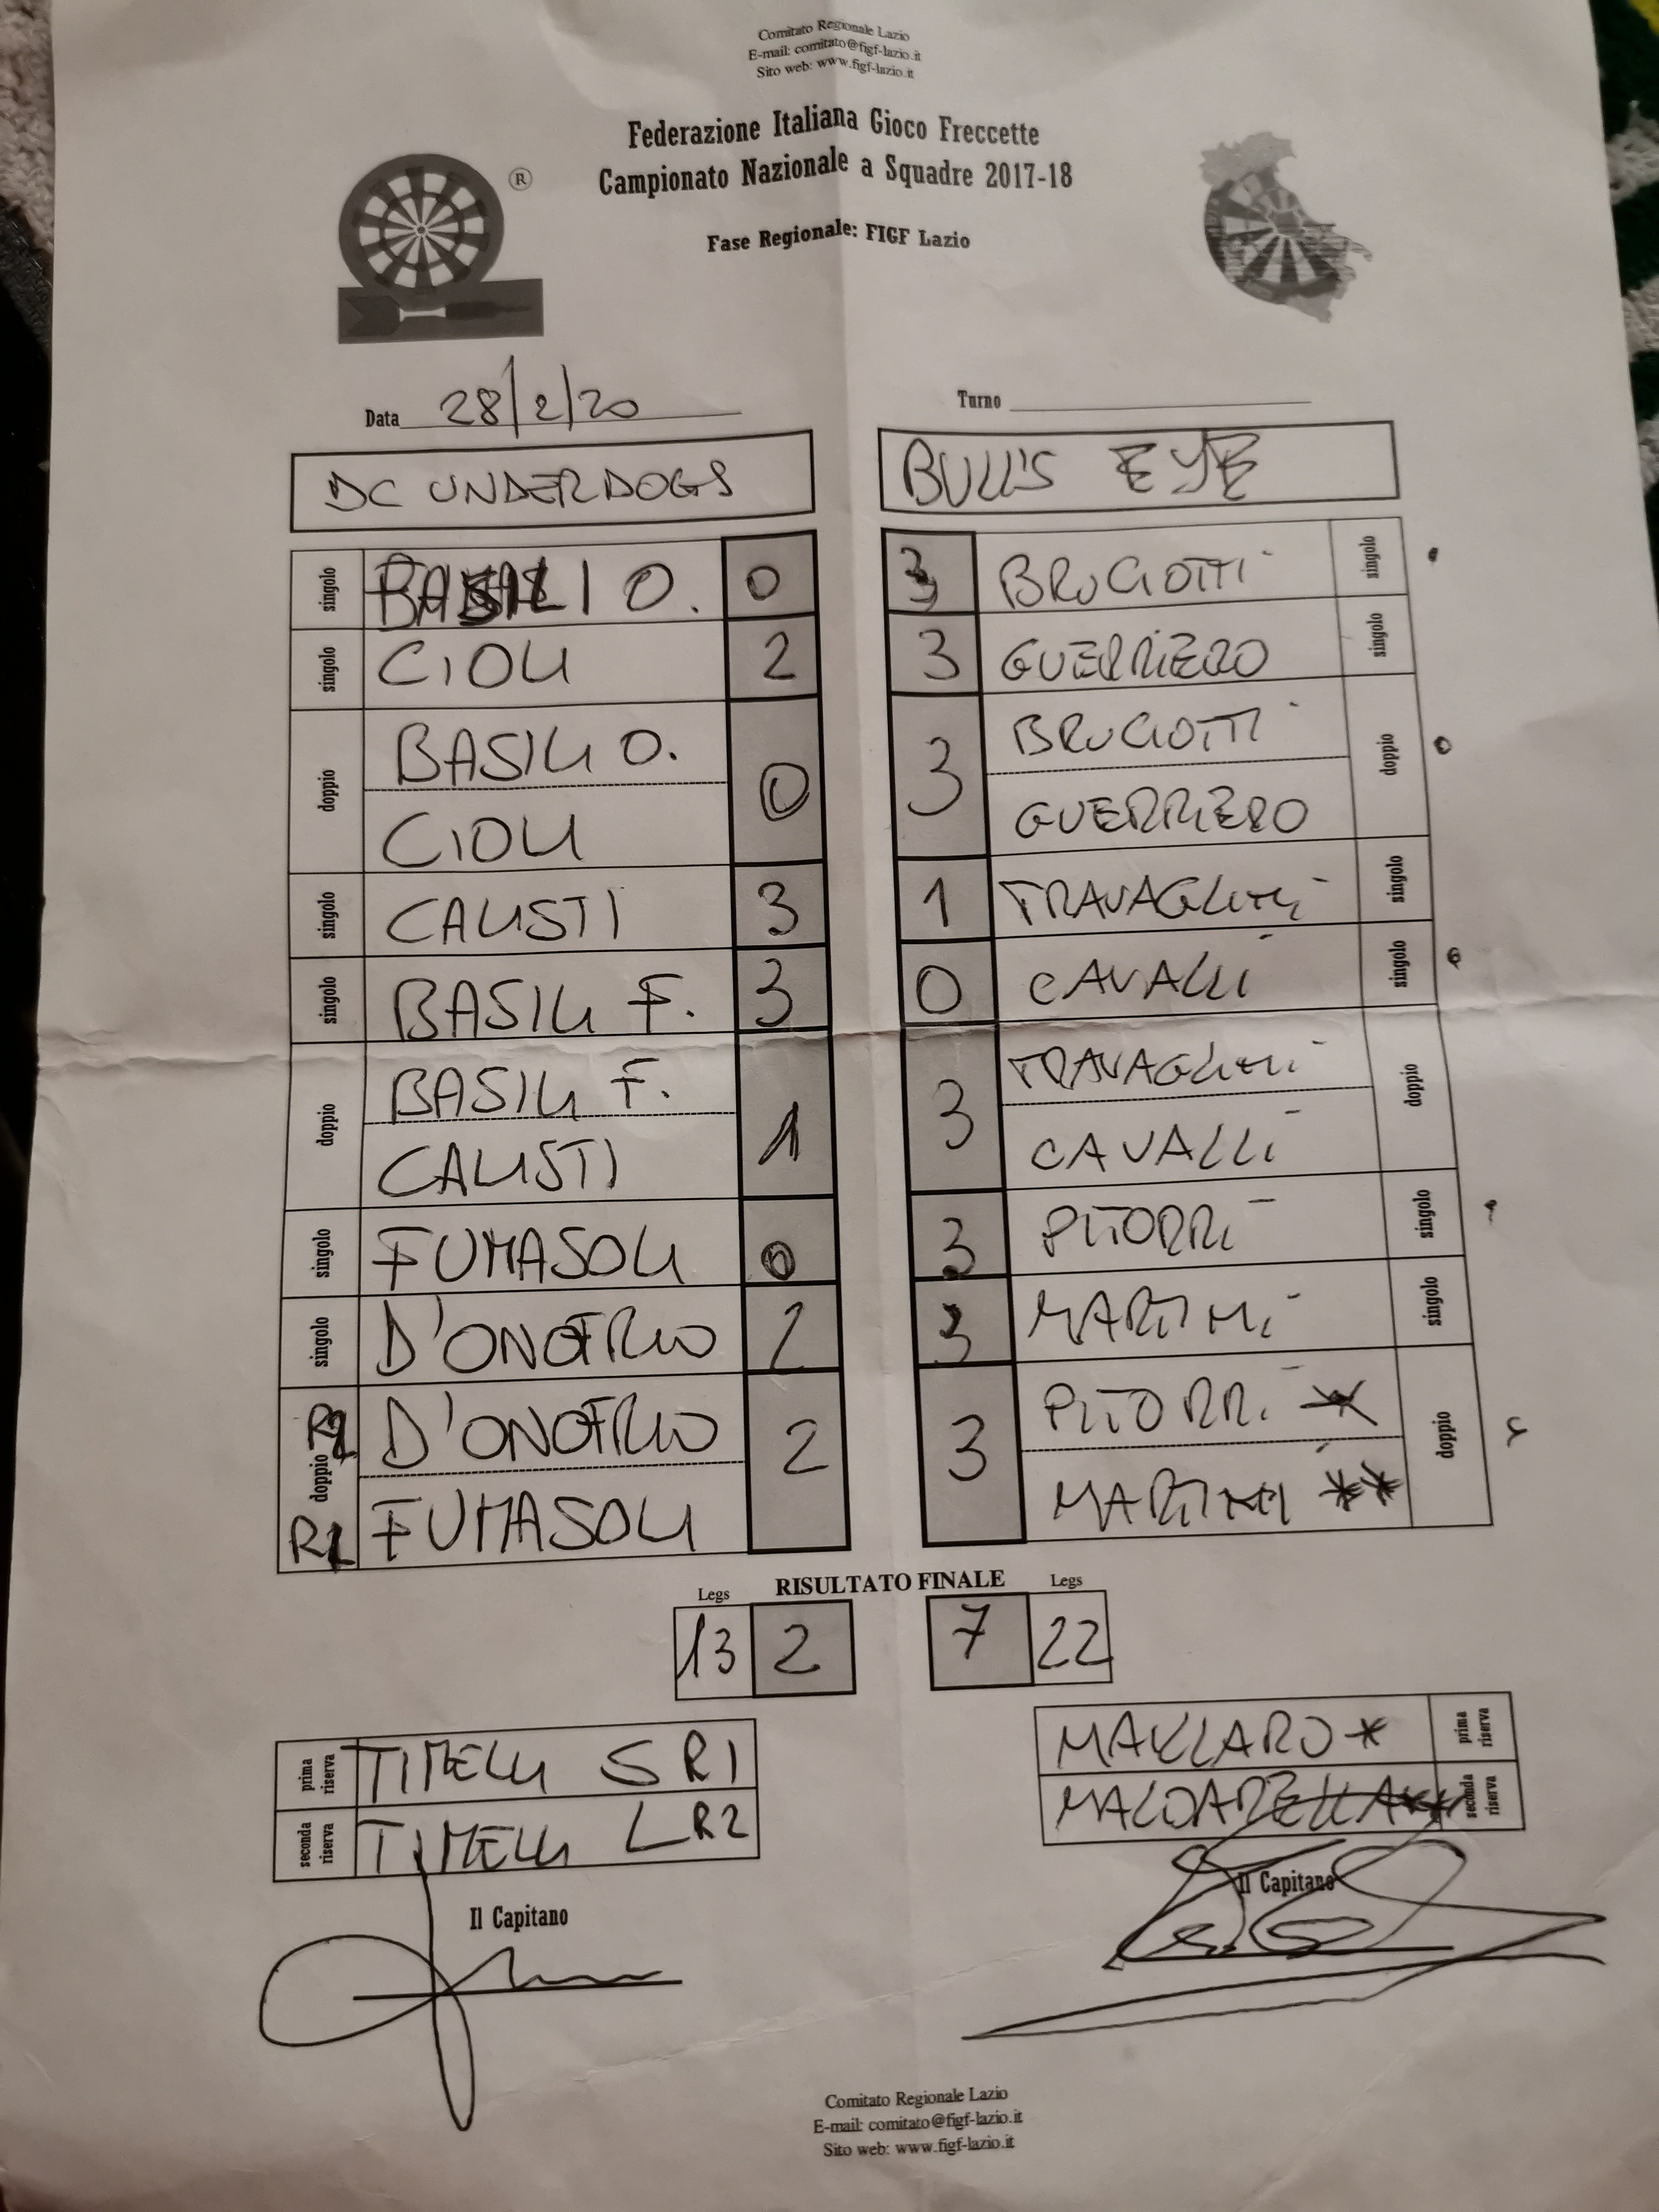 Comitato Regionale Lazio
E-mail: comitato@figf-lazio.it
Sito web: www.figf-lazio.it
Federazione Italiana Gioco Freccette
Campionato Nazionale a Squadre 2017-18
®
Fase Regionale: FIGF Lazio
Data 28/2/20
Turno
DC UNDERDOGS
BULL'S EYE
singolo BASILI O. 0
3 BRUCIOTTI singolo
singolo CIOLI 2
3 GUERRIERO singolo
doppio BASILI O. 0
CIOLI
3 BRUCIOTTI doppio
GUERRIERO
singolo CALISTI 3
1 TRAVAGLINI singolo
singolo BASILI F. 3
0 CAVALLI singolo
doppio BASILI F. 1
CALISTI
3 TRAVAGLINI doppio
CAVALLI
singolo FUMASOLI 0
3 PITORRI singolo
singolo D'ONOFRIO 2
3 MARTINI singolo
doppio R2 D'ONOFRIO 2
R1 FUMASOLI
3 PITORRI * doppio
MARTINI **
RISULTATO FINALE
Legs
Legs
13 2
7 22
prima riserva TIMELLI S R1
seconda riserva TIMELLI L R2
* prima riserva
** seconda riserva
Il Capitano
Il Capitano
Comitato Regionale Lazio
E-mail: comitato@figf-lazio.it
Sito web: www.figf-lazio.it